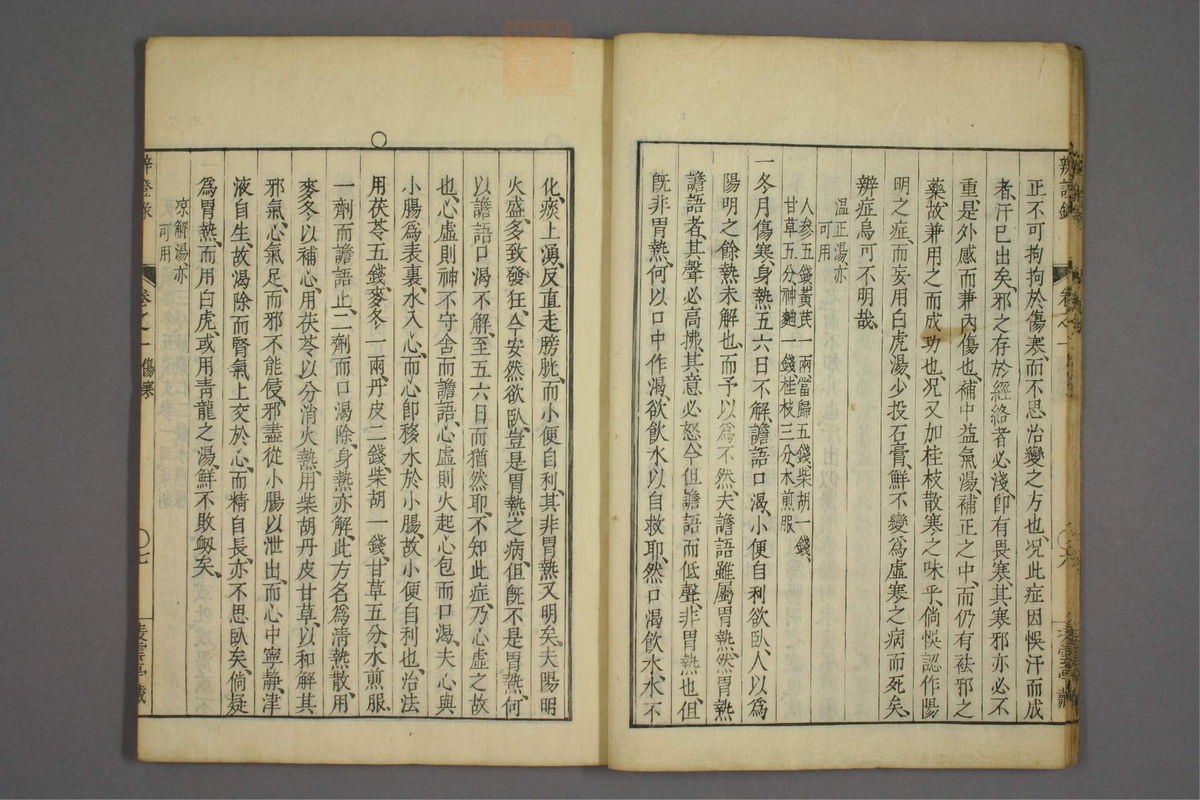 正不可拘拘於傷寒而不思治變之方也、况此症因悞汗而成
者、汗已出矣、邪之存於經絡者必淺、卽有畏寒、其寒邪亦必不
重、是外感而兼內傷也、補中益氣湯、補正之中、而仍有祛邪之
藥、故兼用之而成功也、况又加桂枝散寒之味乎、倘悞認作陽
明之症、而妄用白虎湯、少投石膏、鮮不變爲虛寒之病而死矣、
辨症烏可不明哉、
温正湯亦
可用
人參五錢黃芪一兩當歸五錢柴胡一錢、
甘草五分、神麯一錢桂枝三分、水煎服
一冬月傷寒、身熱五六日不解、譫語口渴、小便自利欲臥、人以爲
陽明之餘熱未解也、而予以爲不然、夫譫語雖屬胃熱、然胃熱
譫語者、其聲必高拂、其意必怒、今但譫語而低聲、非胃熱也、但
旣非胃熱、何以口中作渴、欲飲水以自救耶、然口渴飲水、水不
辨證錄
卷之一
〇六
○
化痰上湧、反直走膀胱、而小便自利、其非胃熱又明矣、夫陽明
火盛、多致發狂、今安然欲臥、豈是胃熱之病、但旣不是胃熱、何
以譫語口渴不解、至五六日而猶然耶、不知此症、乃心虛之故
也、心虛則神不守舍而譫語、心虛則火起心包而口渴、夫心與
小腸爲表裏、水入心而心卽移水於小腸、故小便自利也、治法
用茯苓五錢、麥冬一兩、丹皮二錢、柴胡一錢、甘草五分、水煎服、
一劑而譫語止、二劑而口渴除、身熱亦解、此方名爲淸熱散、用
麥冬以補心、用茯苓以分消火熱、用柴胡丹皮甘草、以和解其
邪氣、心氣足、而邪不能侵、邪盡從小腸以泄出、而心中寧靜、津
液自生、故渴除而腎氣上交於心、而精自長、亦不思臥矣、倘疑
爲胃熱、而用白虎、或用靑龍之湯、鮮不敗衂矣、
凉解湯、亦
可用
卷之一
傷寒
〇七